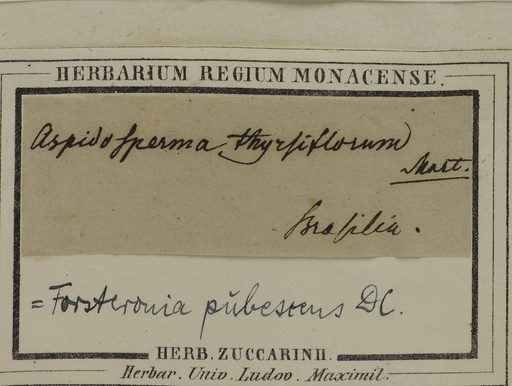 HERBARIUM REGIUM MONACENSE.
Aspidosperma thyrsiflorum
Mart.
Brasilia.
= Forsteronia pubescens DC.
HERB. ZUCCARINII.
Herbar. Univ. Ludov. Maximil.